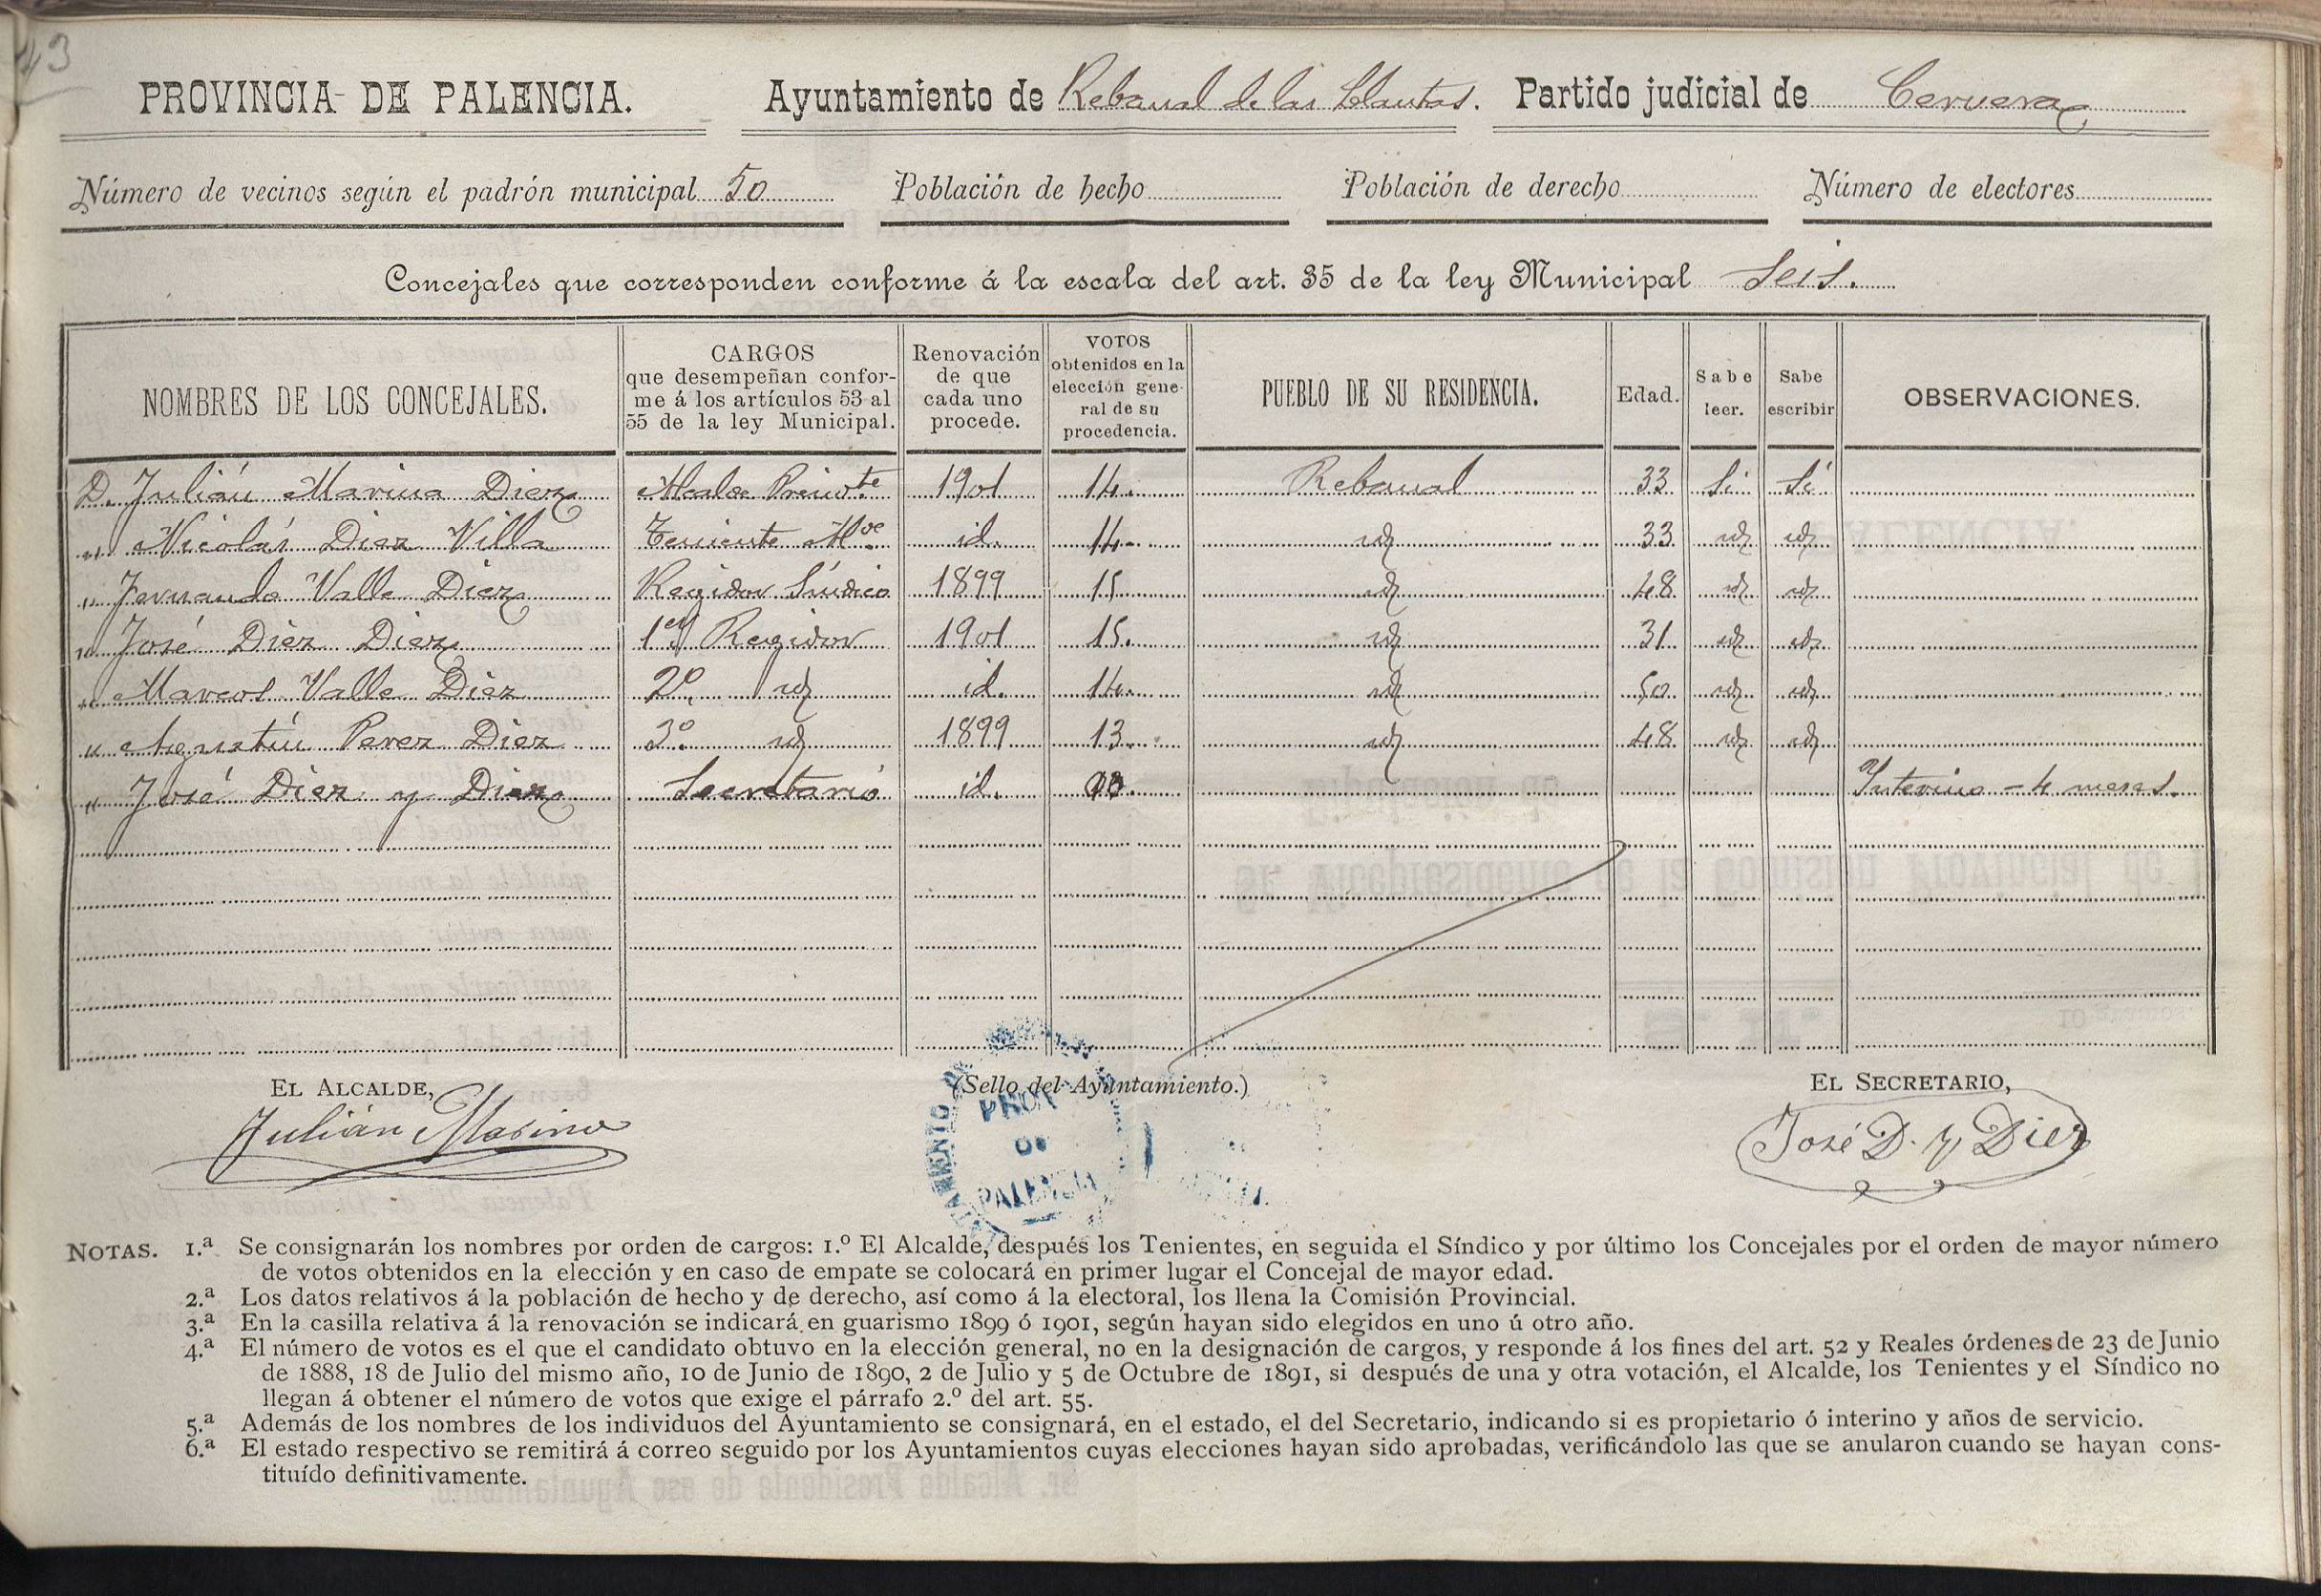 43
PROVINCIA DE PALENCIA. Ayuntamiento de Rebanal de las Llantas. Partido judicial de Cervera
Número de vecinos según el padrón municipal 50 Población de hecho Población de derecho Número de electores
Concejales que corresponden conforme á la escala del art. 35 de la ley Municipal Seis.
NOMBRES DE LOS CONCEJALES. CARGOS que desempeñan confor-me á los artículos 53 al 55 de la ley Municipal. Renovación de que cada uno procede. VOTOS obtenidos en la elección gene-ral de su procedencia. PUEBLO DE SU RESIDENCIA. Edad. Sabe leer. Sabe escribir OBSERVACIONES.
D. Julián Marina Diez Alcalde Presid.te 1901 14. Rebanal 33 Si Si
" Nicolás Diez Villa Teniente Al.de id. 14 id 33 id id
" Fernando Valle Diez Regidor Síndico 1899 15 id 48 id id
" José Diez Diez 1er Regidor 1901 15. id 31 id id
" Marcos Valle Diez 2º id id. 14. id 50 id id
" Agustín Perez Diez 3º id 1899 13 id 48 id id
" José Diez y Diez Secretario id. Interino - 4 meses.
EL ALCALDE, (Sello del Ayuntamiento.) EL SECRETARIO,
Julián Marina José D. y Diez
PALENCIA
NOTAS. 1.ª Se consignarán los nombres por orden de cargos: 1.º El Alcalde, después los Tenientes, en seguida el Síndico y por último los Concejales por el orden de mayor número
de votos obtenidos en la elección y en caso de empate se colocará en primer lugar el Concejal de mayor edad.
2.ª Los datos relativos á la población de hecho y de derecho, así como á la electoral, los llena la Comisión Provincial.
3.ª En la casilla relativa á la renovación se indicará en guarismo 1899 ó 1901, según hayan sido elegidos en uno ú otro año.
4.ª El número de votos es el que el candidato obtuvo en la elección general, no en la designación de cargos, y responde á los fines del art. 52 y Reales órdenes de 23 de Junio
de 1888, 18 de Julio del mismo año, 10 de Junio de 1890, 2 de Julio y 5 de Octubre de 1891, si después de una y otra votación, el Alcalde, los Tenientes y el Síndico no
llegan á obtener el número de votos que exige el párrafo 2.º del art. 55.
5.ª Además de los nombres de los individuos del Ayuntamiento se consignará, en el estado, el del Secretario, indicando si es propietario ó interino y años de servicio.
6.ª El estado respectivo se remitirá á correo seguido por los Ayuntamientos cuyas elecciones hayan sido aprobadas, verificándolo las que se anularon cuando se hayan cons-
tituído definitivamente.